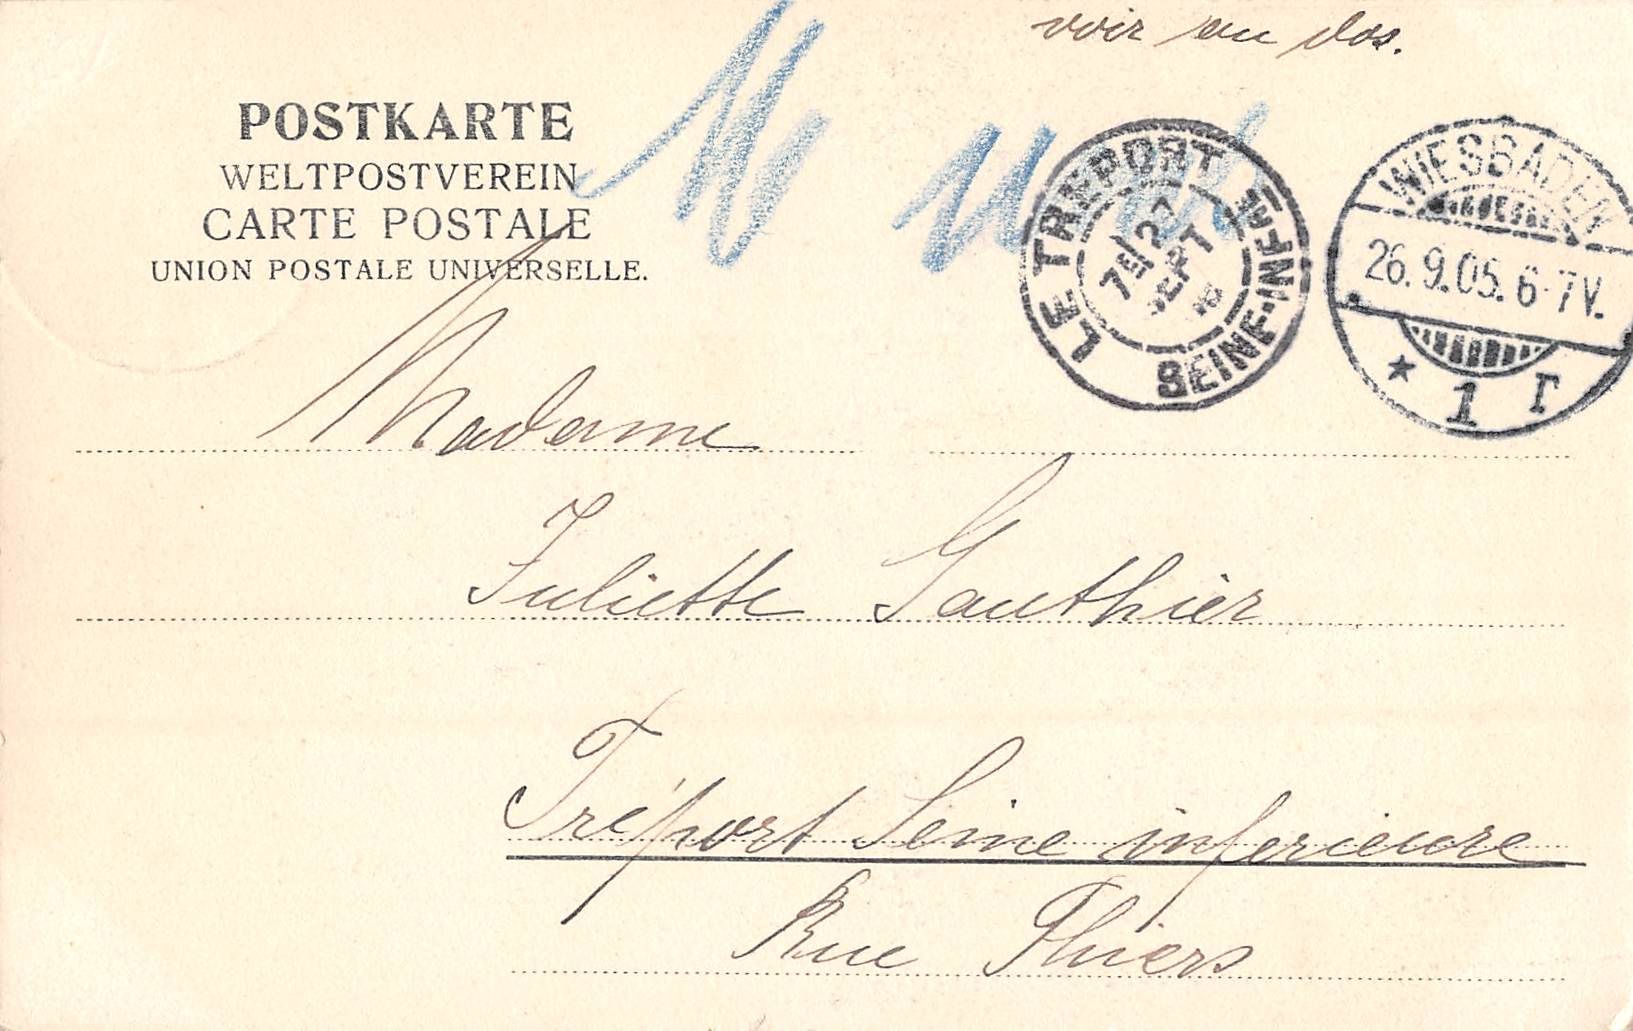 voir au dos.
POSTKARTE
WELTPOSTVEREIN
CARTE POSTALE
UNION POSTALE UNIVERSELLE.
LE TREPORT SEINE-INFRE
7E/27
SEPT
WIESBADEN
26.9.05. 6-7V.
* 1 r
Madame
Juliette Gauthier
Tréport Seine inferieure
Rue Thiers